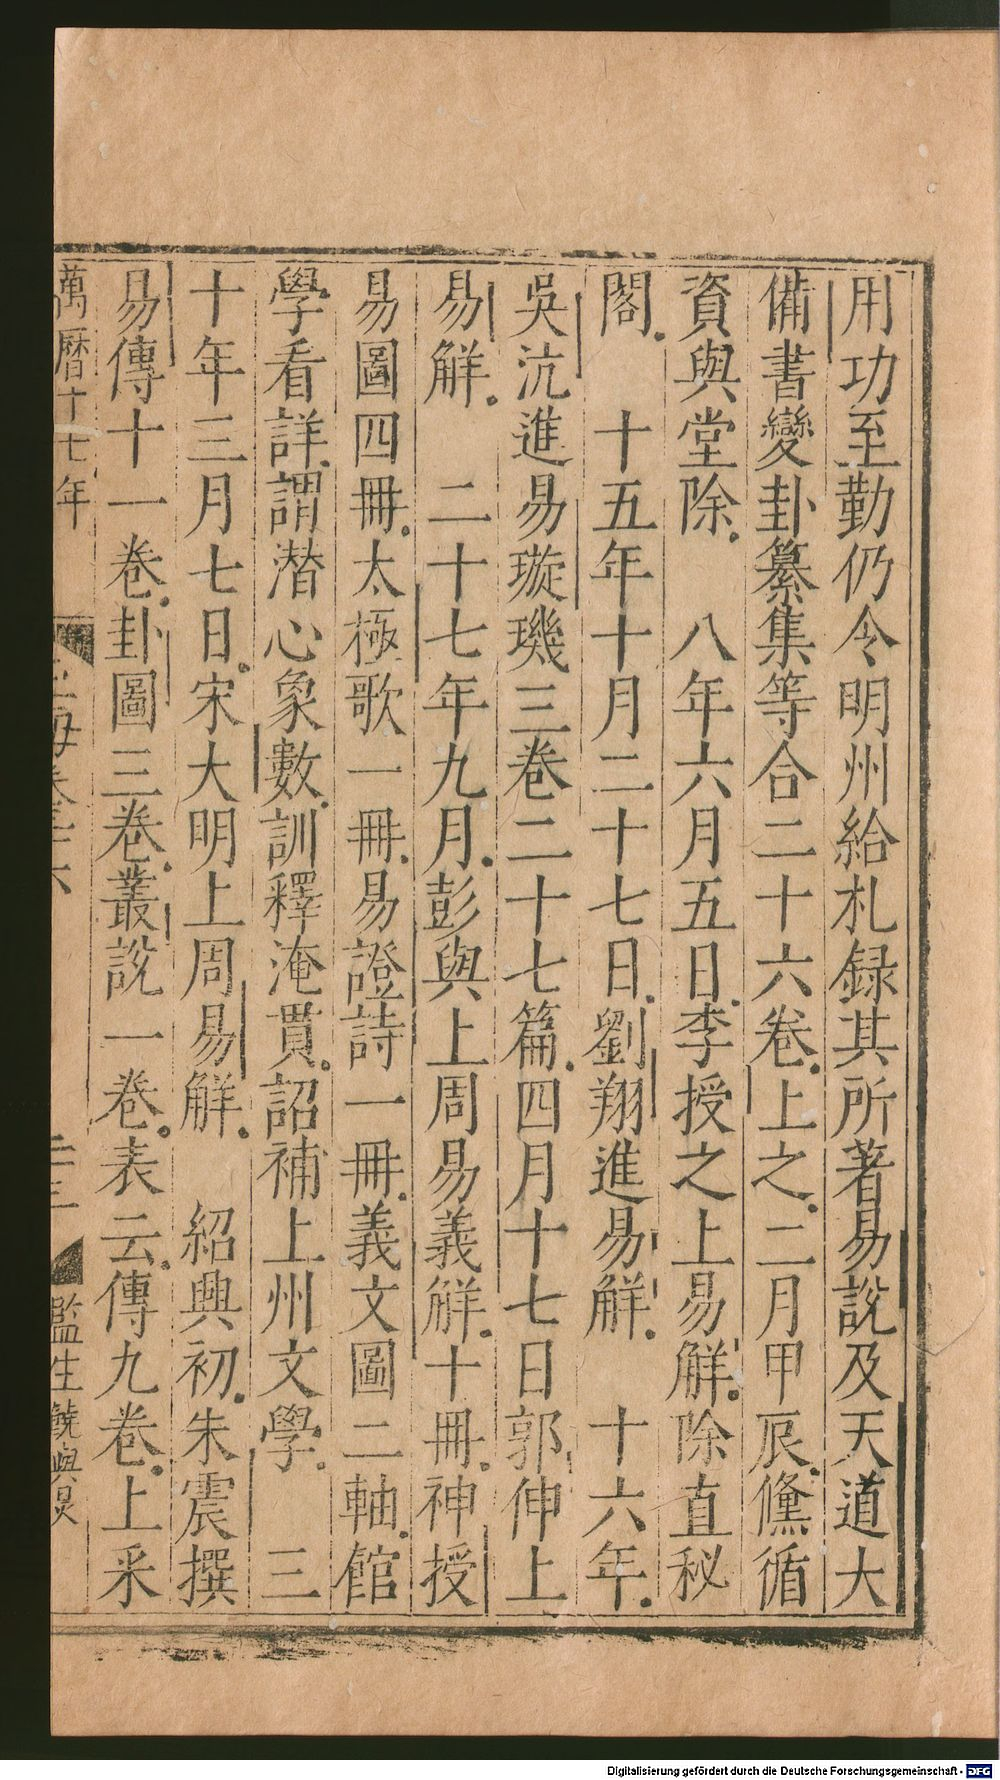 用功至勤仍令明州給札録其所著易說及天道大
備書變卦纂集等合二十六卷上之二月甲辰儻循
資與堂除　八年六月五日李授之上易解除直秘
閣　十五年十月二十七日劉翔進易解　十六年
吳沆進易璇璣三卷二十七篇四月十七日郭伸上
易解　二十七年九月彭與上周易義解十冊神授
易圖四冊太極歌一冊易證詩一冊義文圖二軸館
學看詳謂潛心象數訓釋淹貫詔補上州文學　三
十年三月七日宋大明上周易解　紹興初朱震撰
易傳十一卷卦圖三卷叢說一卷表云傳九卷上采
萬曆十七年
監生
Digitalisierung gefördert durch die Deutsche Forschungsgemeinschaft - DFG